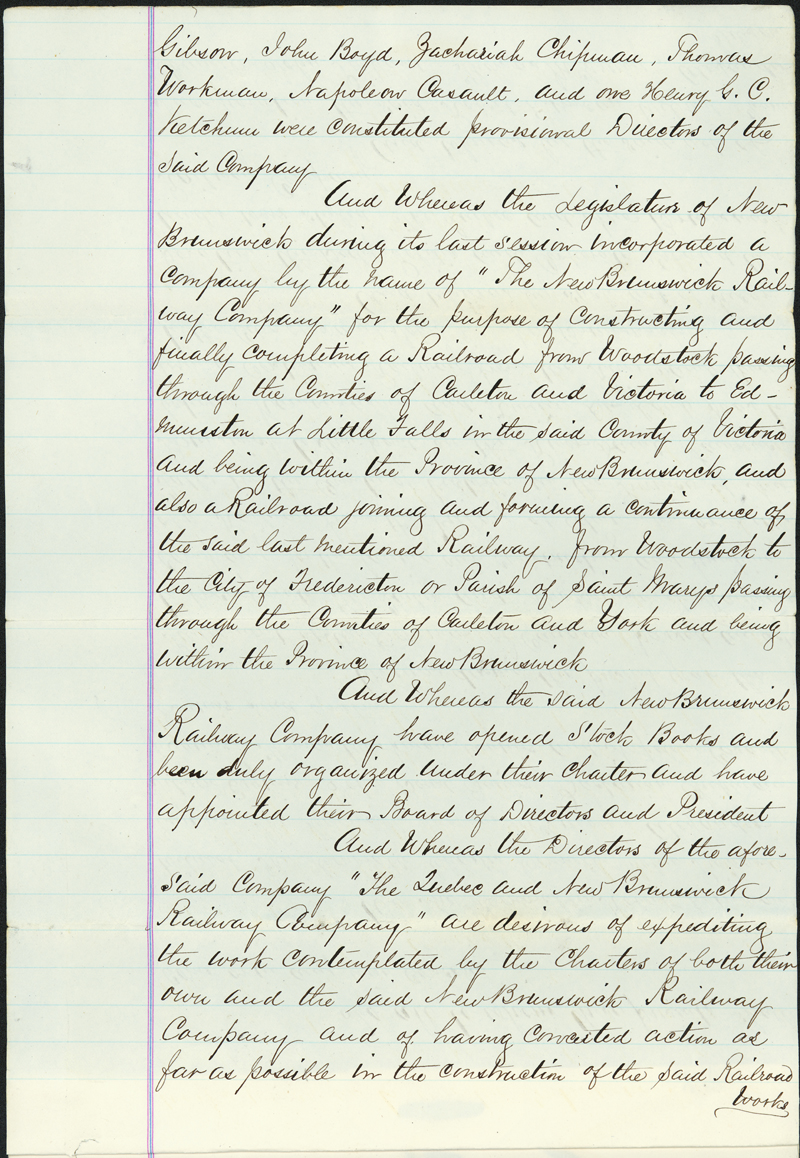 Gibson, John Boyd, Zachariah Chipman, Thomas
Workman, Napoleon Casault, and one Henry G. C.
Ketchum were constituted provisional Directors of the
said Company
And Whereas the Legislature of New
Brunswick during its last session incorporated a
company by the name of "The New Brunswick Rail-
way Company" for the purpose of constructing and
finally completing a Railroad from Woodstock passing
through the Counties of Carleton and Victoria to Ed-
munston at Little Falls in the said County of Victoria
and being within the Province of New Brunswick, and
also a Railroad joining and forming a continuance of
the said last mentioned Railway, from Woodstock to
the City of Fredericton or Parish of Saint Marys passing
through the Counties of Carleton and York and being
within the Province of New Brunswick
And Whereas the said New Brunswick
Railway Company have opened Stock Books and
been duly organized under their Charter and have
appointed their Board of Directors and President
And Whereas the Directors of the afore-
said Company "The Quebec and New Brunswick
Railway Company" are desirous of expediting
the work contemplated by the Charters of both their
own and the said New Brunswick Railway
Company and of having concerted action as
far as possible in the construction of the said Railroad
Works